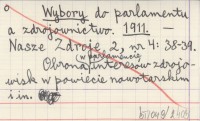 o Wybory do parlamentu
a zdrojownictwo. 1911. —
Nasze Zdroje, 2, nr 4: 38-39.
(w parlamencie)
Obrona interesów zdrojo-
wisk w powiecie nowotarskim
i in.